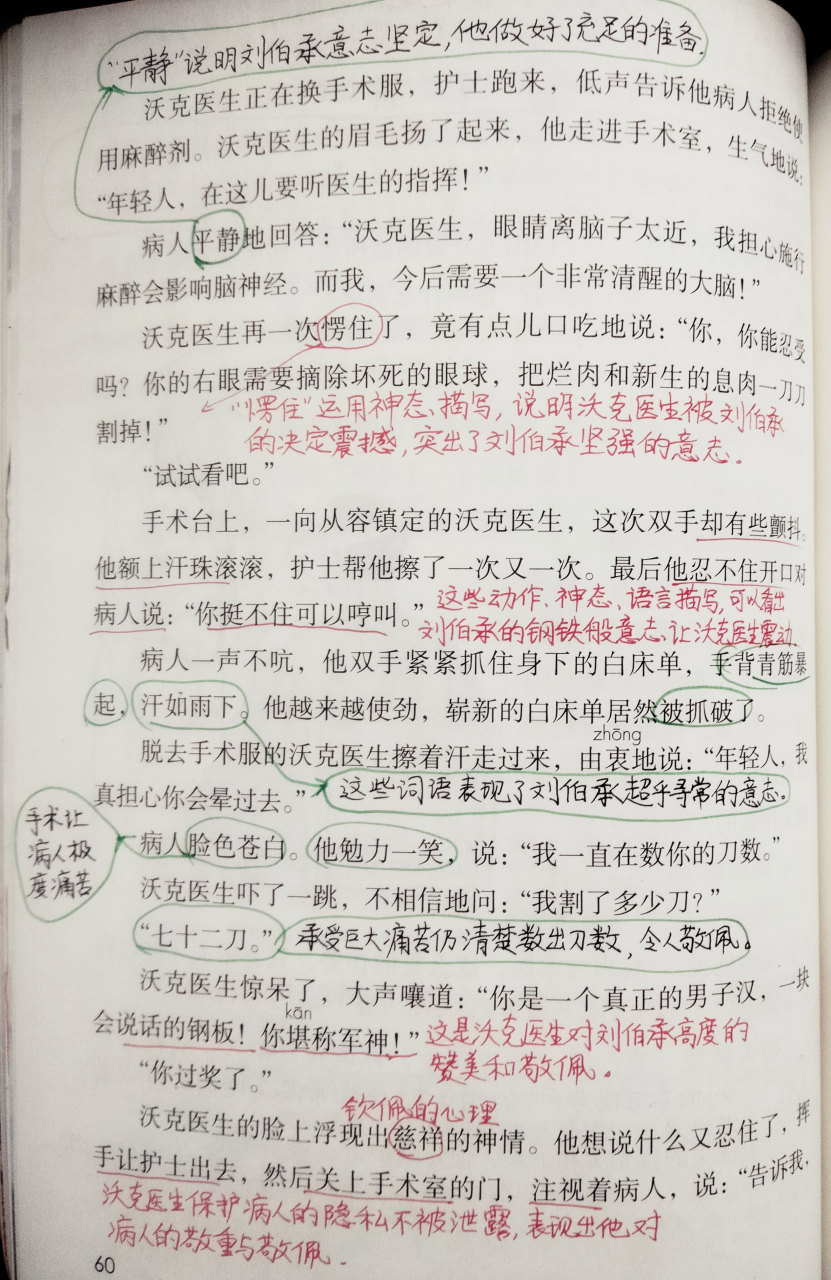 “平静”说明刘伯承意志坚定，他做好了充足的准备.
沃克医生正在换手术服，护士跑来，低声告诉他病人拒绝使
用麻醉剂。沃克医生的眉毛扬了起来，他走进手术室，生气地说：
“年轻人，在这儿要听医生的指挥！”
病人平静地回答：“沃克医生，眼睛离脑子太近，我担心施行
麻醉会影响脑神经。而我，今后需要一个非常清醒的大脑！”
沃克医生再一次愣住了，竟有点儿口吃地说：“你，你能忍受
吗？你的右眼需要摘除坏死的眼球，把烂肉和新生的息肉一刀刀
割掉！”
“愣住”运用神态描写，说明沃克医生被刘伯承
的决定震撼，突出了刘伯承坚强的意志.
“试试看吧。”
手术台上，一向从容镇定的沃克医生，这次双手却有些颤抖。
他额上汗珠滚滚，护士帮他擦了一次又一次。最后他忍不住开口对
病人说：“你挺不住可以哼叫。”
这些动作、神态、语言描写，可以看出
刘伯承的钢铁般意志让沃克医生震边
病人一声不吭，他双手紧紧抓住身下的白床单，手背青筋暴
起，汗如雨下。他越来越使劲，崭新的白床单居然被抓破了。
zhōng
脱去手术服的沃克医生擦着汗走过来，由衷地说：“年轻人，我
真担心你会晕过去。”
这些词语表现了刘伯承人超乎寻常的意志.
手术让
病人极
度痛苦
病人脸色苍白。他勉力一笑，说：“我一直在数你的刀数。”
沃克医生吓了一跳，不相信地问：“我割了多少刀？”
“七十二刀。”
承受巨大痛苦仍清楚数出刀数，令人敬佩。
沃克医生惊呆了，大声嚷道：“你是一个真正的男子汉，一块
kān
会说话的钢板！你堪称军神！”
这是沃克医生对刘伯承高度的
赞美和敬佩.
“你过奖了。”
钦佩的心理
沃克医生的脸上浮现出慈祥的神情。他想说什么又忍住了，挥
手让护士出去，然后关上手术室的门，注视着病人，说：“告诉我，
沃克医生保护病人的隐私不被泄露，表现出他对
病人的敬重与敬佩.
60